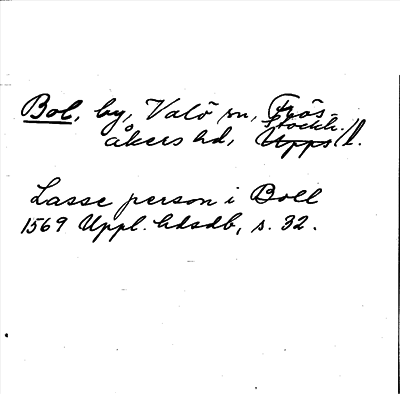 Bol, by, Valö sn, Frös-
åkers hd, Stockh. Upps l.
Lasse person i Boll
1569 Uppl. hdsdb, s. 32.